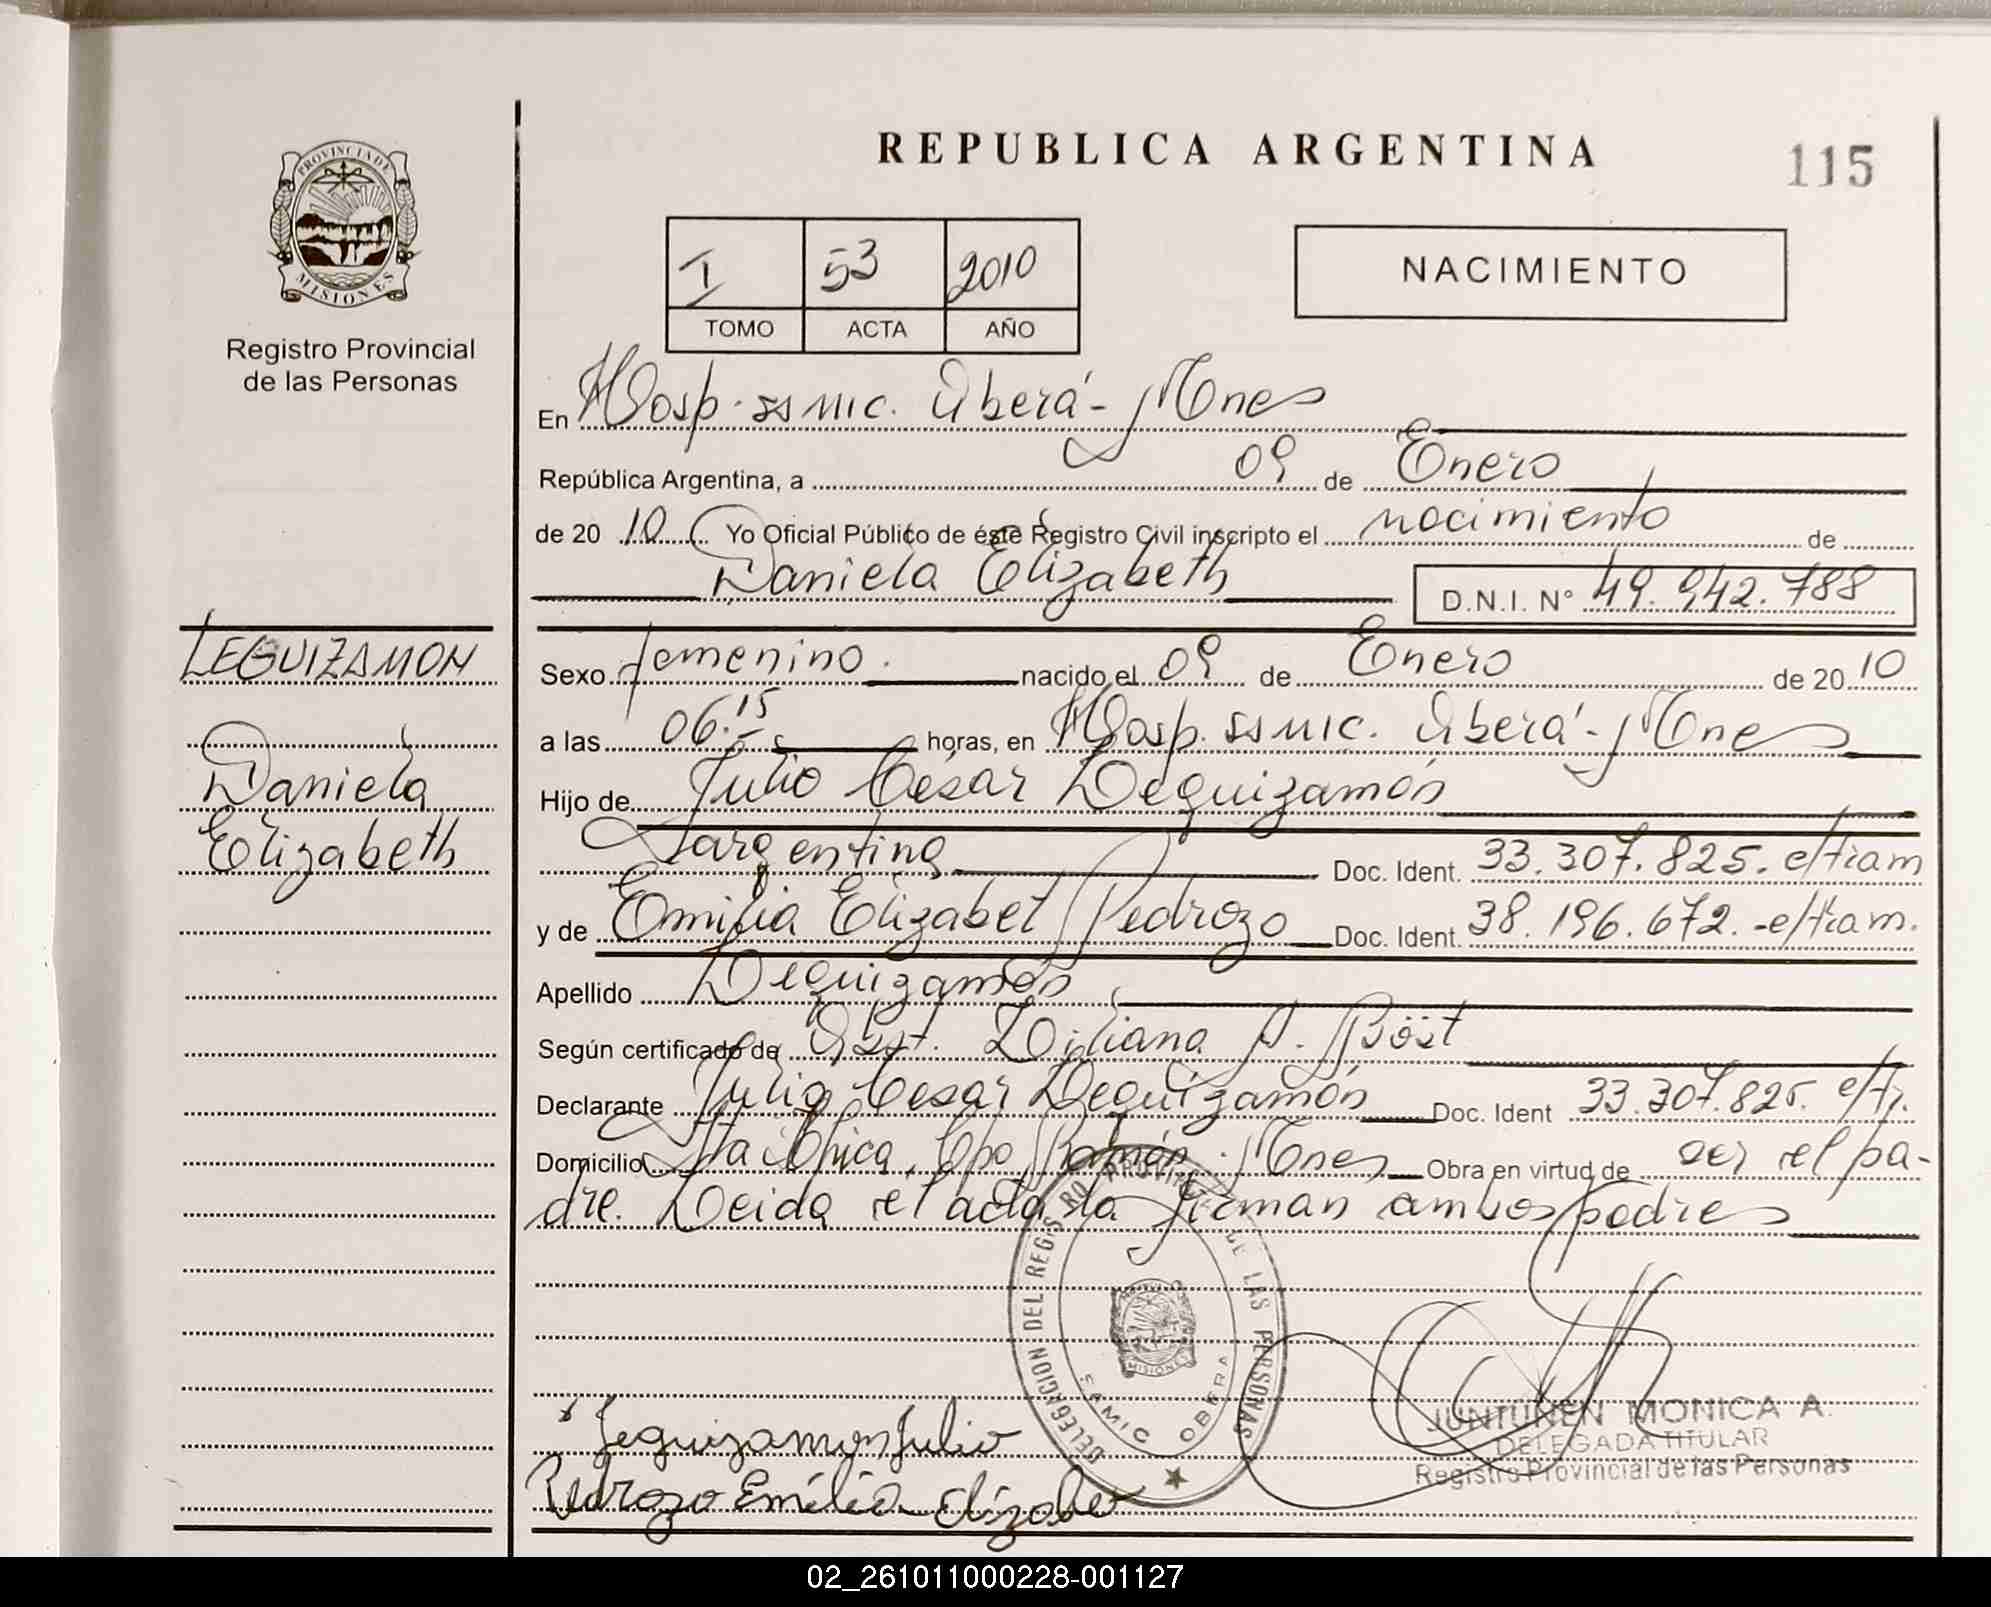 REPUBLICA ARGENTINA
115
PROVINCIA DE
MISIONES
Registro Provincial
de las Personas
I 53 2010
TOMO ACTA AÑO
NACIMIENTO
En Hosp. ss MIC. Oberá - Mnes
República Argentina, a 09 de Enero
de 20 10 Yo Oficial Público de éste Registro Civil inscripto el nacimiento de
Daniela Elizabeth
D.N.I. N° 49.942.788
LEGUIZAMON
Daniela
Elizabeth
Sexo femenino. nacido el 09 de Enero de 20 10
a las 06.15 horas, en Hosp. ss MIC. Oberá - Mnes
Hijo de Julio César Leguizamón
argentina Doc. Ident. 33.307.825. e/tram
y de Emilia Elizabet Pedrozo Doc. Ident. 38.196.672.-e/tram.
Apellido Leguizamón
Según certificado de Obst. Liliana A. Böst
Declarante Julio Cesar Leguizamón Doc. Ident 33.307.825. e/tr.
Domicilio Chica, Cpo Ramón - Mnes Obra en virtud de ser el pa-
dre. Leida el acta la firman ambos padres
DELEGACION DEL REGISTRO PROVINCIAL DE LAS PERSONAS
SAMIC OBERA
MISIONES
Leguizamon Julio
Pedrozo Emilia Elizabet
JUNTUNEN MONICA A.
DELEGADA TITULAR
Registro Provincial de las Personas
02_261011000228-001127